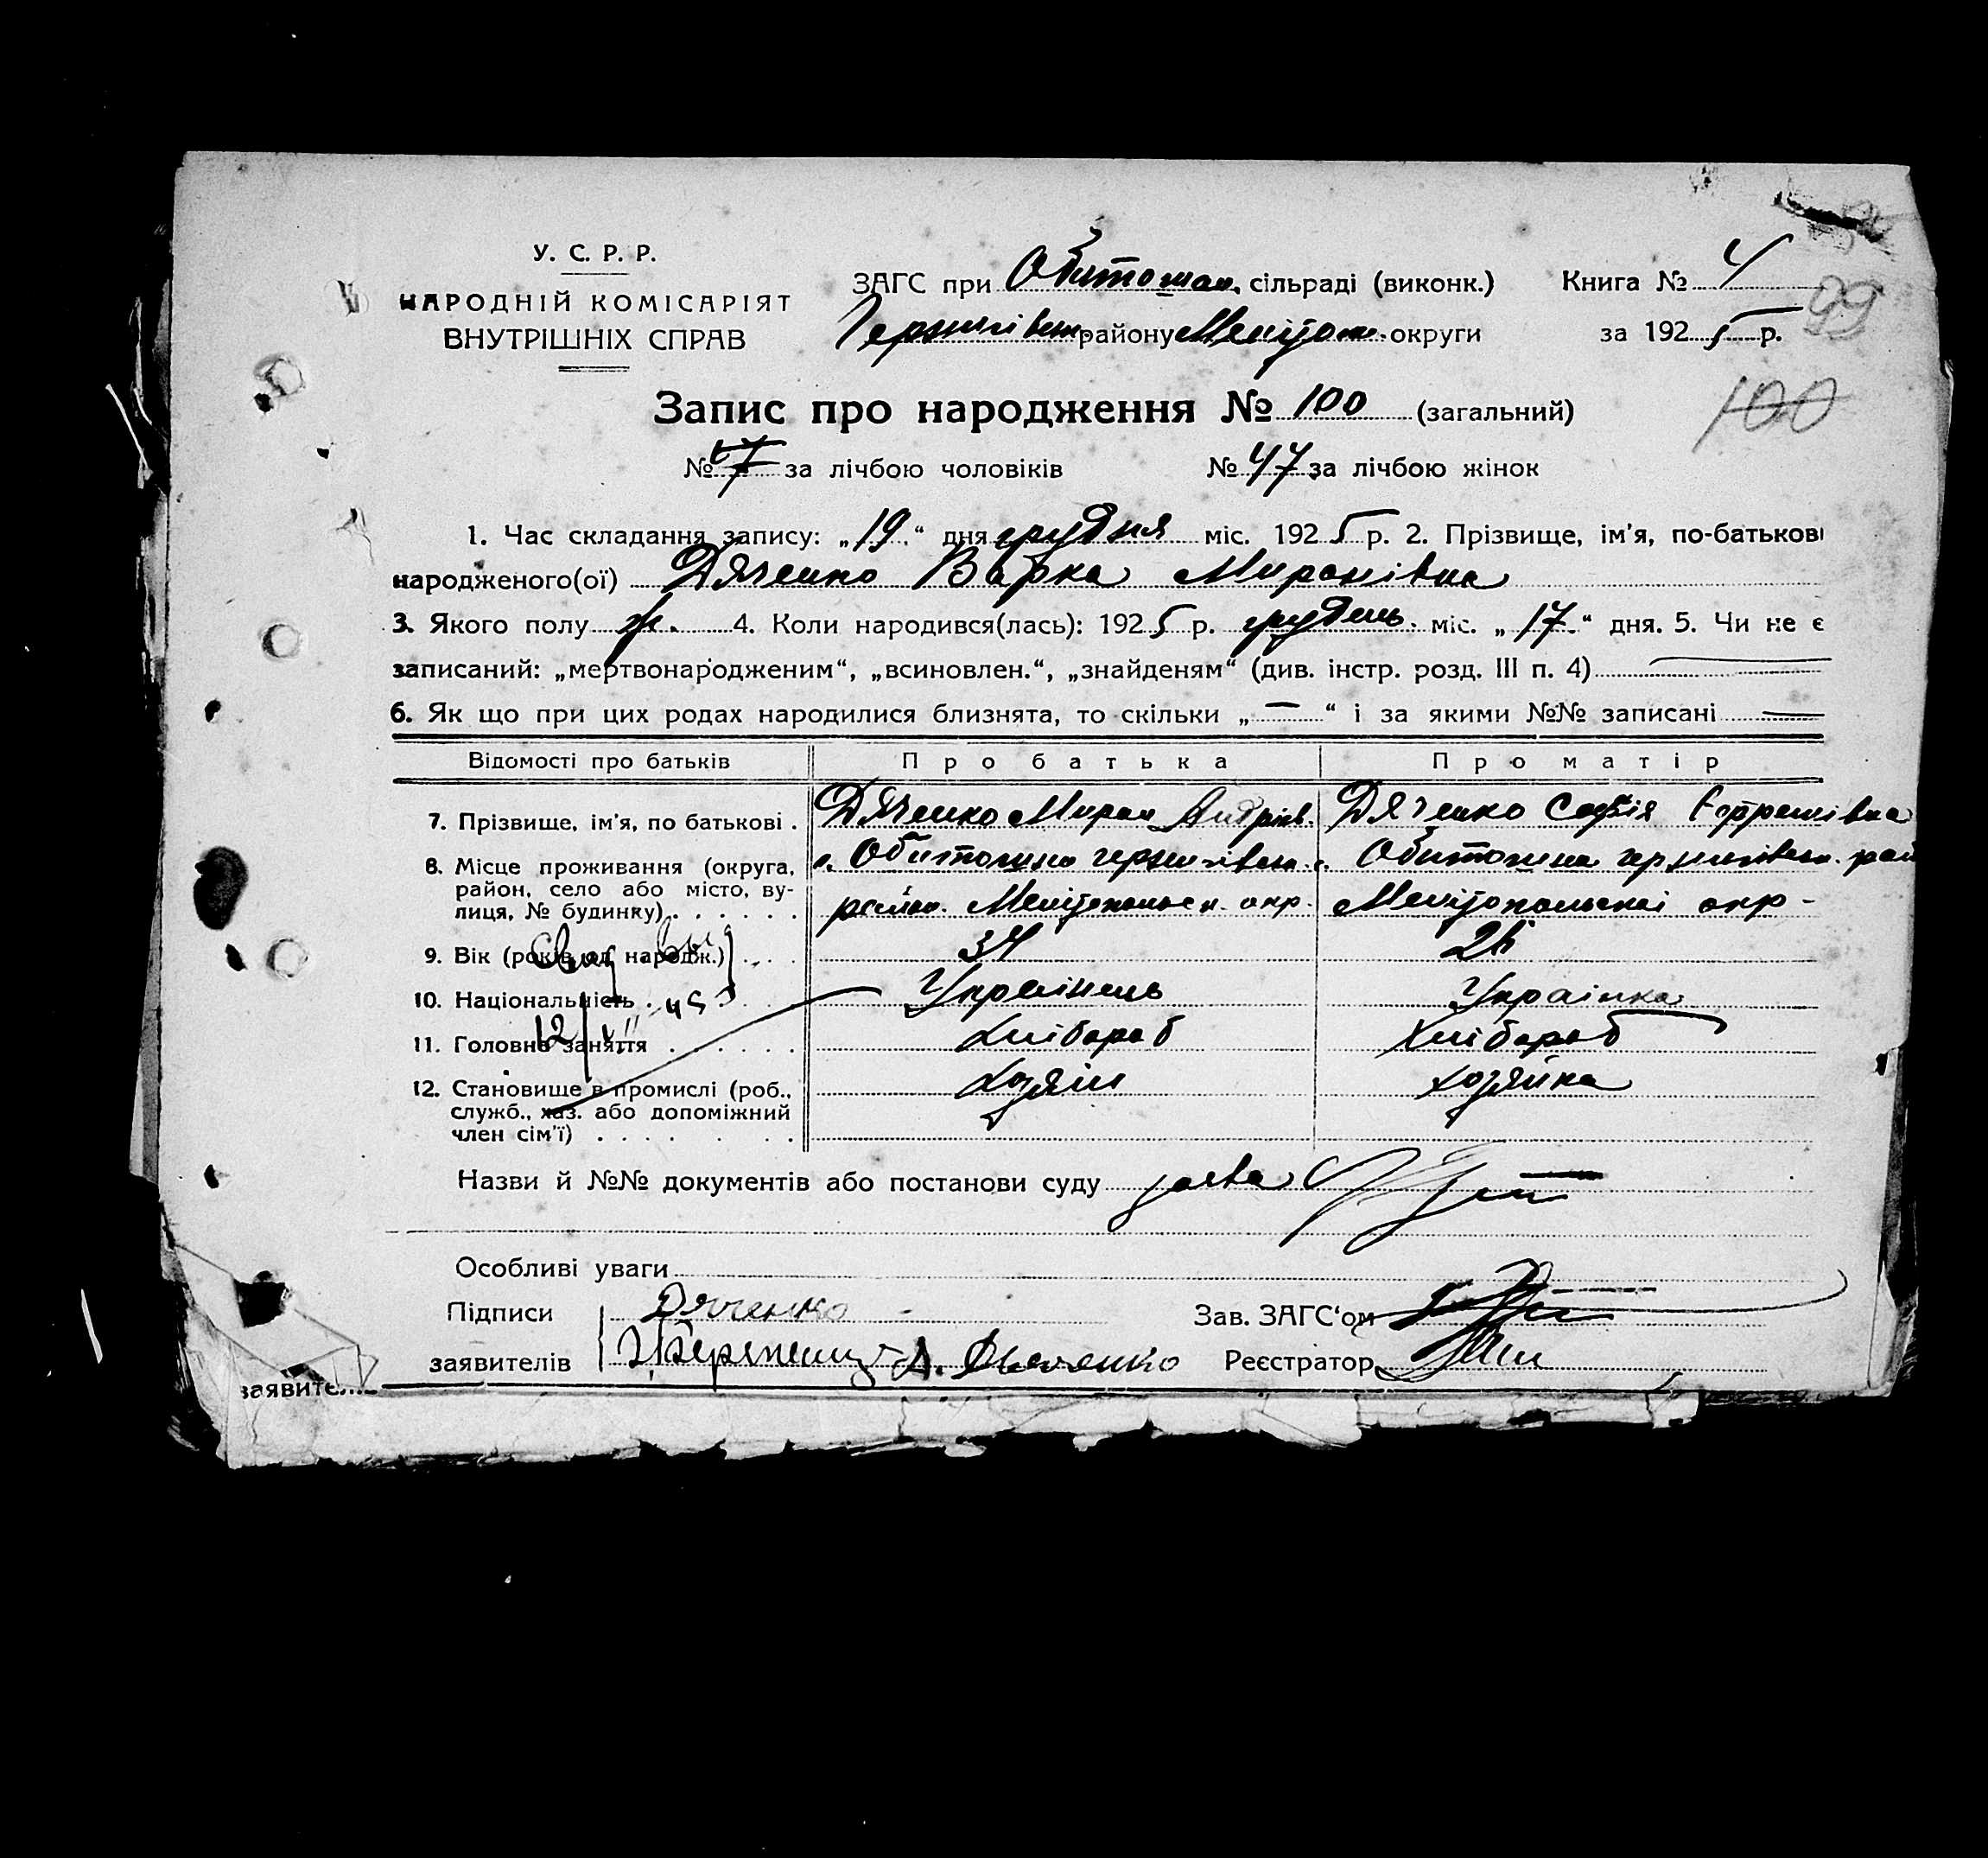 У. С. Р. Р.
НАРОДНІЙ КОМІСАРІЯТ
ВНУТРІШНІХ СПРАВ
ЗАГС при Обитошан. сільраді (виконк.) Книга № 4
району Мелітоп. округи за 1925 р.
99
Запис про народження № 100 (загальний)
100
№ за лічбою чоловіків № 47 за лічбою жінок
1. Час складання запису: „19“ дня грудня міс. 1925 р. 2. Прізвище, ім'я, по-батькові
народженого(ої) Дяченко Варка Миронівна
3. Якого полу ж. 4. Коли народився(лась): 1925 р. грудень міс. „17“ дня. 5. Чи не є
записаний: „мертвонародженим“, „всиновлен.“, „знайденям“ (див. інстр. розд. III п. 4) —
6. Як що при цих родах народилися близнята, то скільки „—“ і за якими №№ записані —
Відомості про батьків Про батька Про матір
7. Прізвище, ім'я, по батькові . Дяченко Мирон Андрієв. Дяченко Софія
8. Місце проживання (округа, район, село або місто, вулиця, № будинку) . . . . . .
с. Обиточна чернигівськ. с. Обиточна чернигівськ. рай
район. Мелітопольськ. окр. Мелітопольскої окр-
9. Вік (років од народж.) . . . 34
10. Національність . Українець Українка
11. Головне заняття . . . . . . Хлібороб Хлібороб
12. Становище в промислі (роб., Хозяїн хозяйка
служб., хаз. або допоміжний
член сім'ї) . . . . . . .
Назви й №№ документів або постанови суду
Особливі уваги
Підписи Дяченко Зав. ЗАГС'ом
заявителів Реєстратор